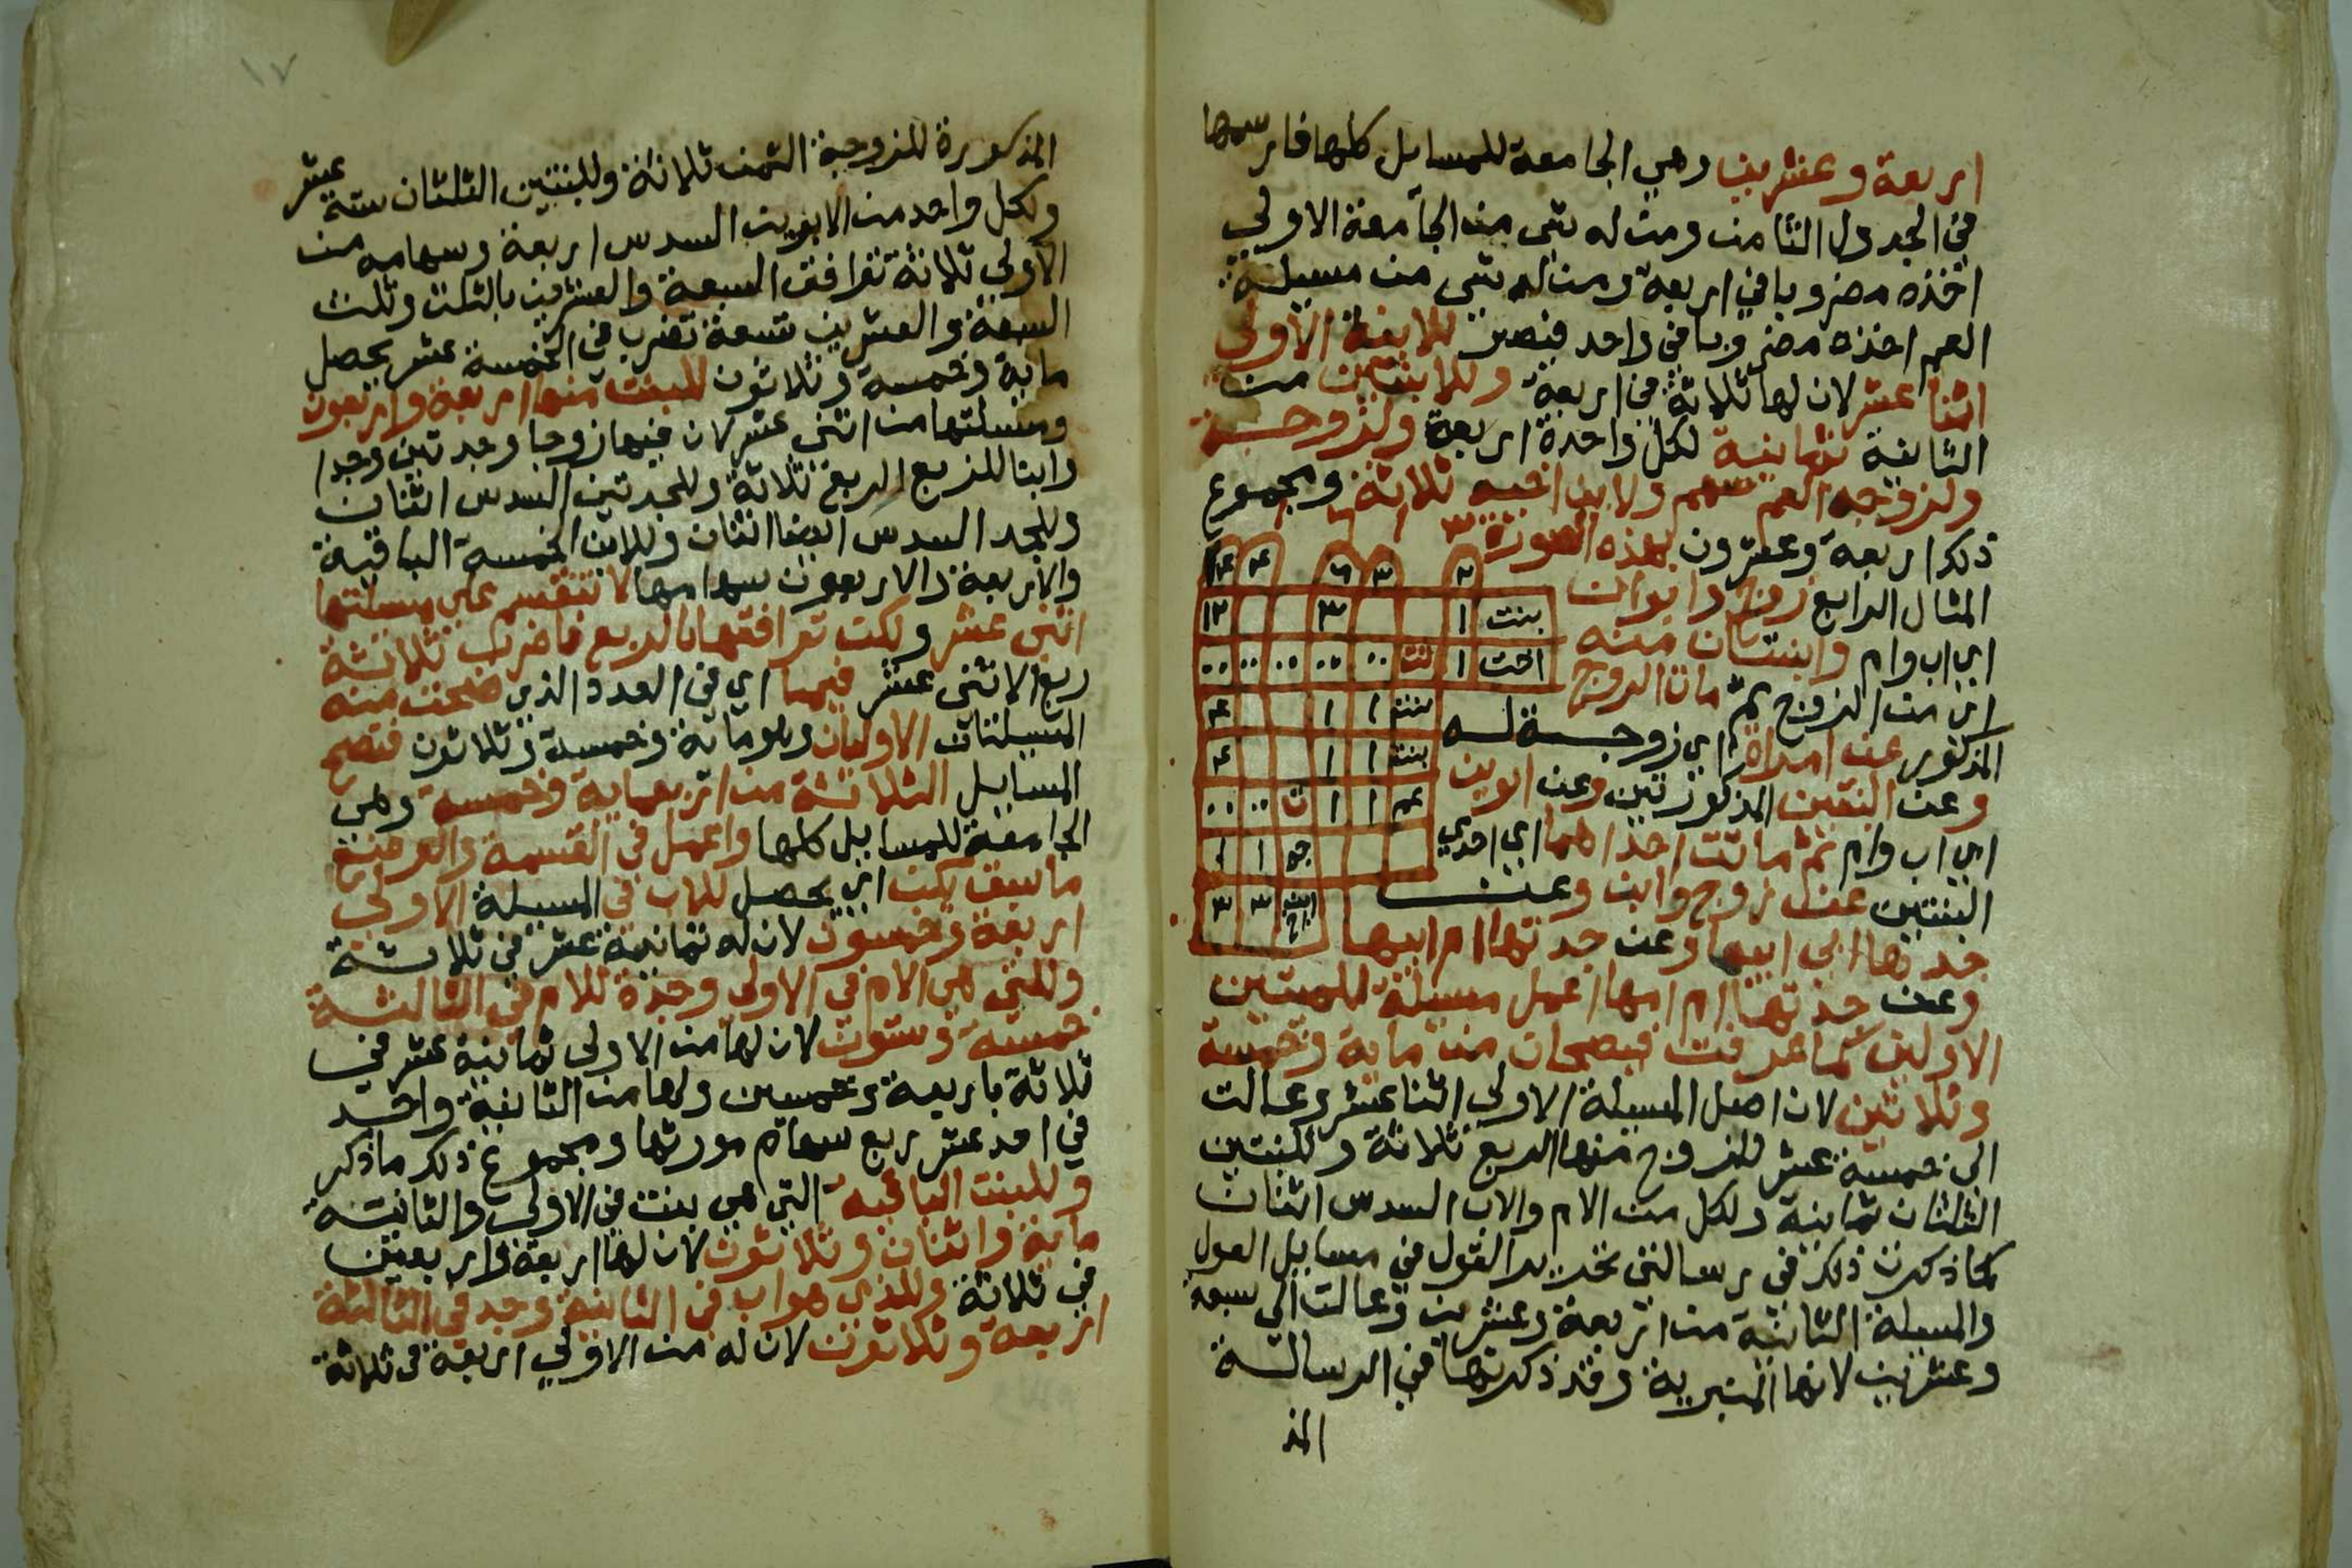 اربعة وعشرين وهي الجامعة للمسايل كلها فارسمها
في الجدول الثامن ومن له شي من الجامعة الاولي
اخذه مضروبا في اربعة ومن له شي من مسيلة
العم اخذه مضروبا في واحد فيصير للابنة الاولي
اثنا عشر لان لها ثلاثة في اربعة وللابنتين من
الثانية ثمانية لكل واحدة اربعة ولزوجة
ولزوجة العم سهم ولابن اخيه ثلاثة ومجموع
ذلك اربعة وعشرون بهذه الصورة
المثال الرابع زوج وابوان
اي اب وام وابنتان منه
اي من الزوج ثم مات الزوج
المذكور عن امراة اي زوجة له
وعن البنتين المذكورتين وعن ابوين
اي اب وام ثم ماتت احداهما اي احدي
البنتين عن زوج وابن وعن
جدها ابي ابيها وعن جدتها ام ابيها
وعن جدتها ام امها اعمل مسيلة للميتين
الاولين كما عرفت فيصحان من ماية وخمسة
وثلاثين لان اصل المسيلة الاولي اثنا عشر وعالت
الي خمسة عشر للزوج منها الربع ثلاثة وللبنتين
الثلثان ثمانية ولكل من الام والاب السدس اثنان
كما ذكرت ذلك في رسالتي تحرير القول في مسايل العول
والمسيلة الثانية من اربعة وعشرين وعالت الي سبعة
وعشرين لانها المنبرية وقد ذكرتها في الرسالة
المذ
٢ ٣ ٦ ٢٤ ٢٤
بنت ١ ٣ ١٢
اخت ١ تت ٠٠ ٠٠ ٠٠ ٠٠ ٠٠
بنت ١ ١ ٤
بنت ١ ١ ٤
عم ١ ١ ت ٠٠ ٠٠
جه ١ ١
ابن اخ ٣ ٣
١٧
المذكورة للزوجة الثمن ثلاثة وللبنتين الثلثان ستة عشر
ولكل واحد من الابوين السدس اربعة وسهامه من
الاولي ثلاثة توافق السبعة والعشرين بالثلث وثلث
السبعة والعشرين تسعة تضرب في الخمسة عشر يحصل
ماية وخمسة وثلاثون للبنت منها اربعة واربعون
ومسيلتها من اثني عشر لان فيها زوجا وجدتين وجدا
وابنا للزوج الربع ثلاثة وللجدتين السدس اثنان
وللجد السدس ايضا اثنان وللابن الخمسة الباقية
والاربعة والاربعون سهامها لا تنقسم علي مسيلتها
اثني عشر ولكن توافقها بالربع فاضرب ثلاثة
ربع الاثني عشر فيها اي في العدد الذي صحت منه
المسيلتان الاوليان وهو ماية وخمسة وثلاثون فتصح
المسايل الثلاثة من اربعماية وخمسة وهي
الجامعة للمسايل كلها واعمل في القسمة والعرضة
ما سبق يكن اي يحصل للاب في المسيلة الاولي
اربعة وخمسون لان له ثمانية عشر في ثلاثة
وللتي هي الام في الاولي وجدة للام في الثالثة
خمسة وستون لان لها من الاولي ثمانية عشر في
ثلاثة باربعة وخمسين ولها من الثانية واحد
في احد عشر ربع سهام مورثها ومجموع ذلك ما ذكر
وللبنت الباقية التي هي بنت في الاولي والثانية
ماية واثنان وثلاثون لان لها اربعة واربعين
في ثلاثة وللذي هو اب في الثانية وجد في الثالثة
اربعة وثلاثون لان له من الاولي اربعة في ثلاثة